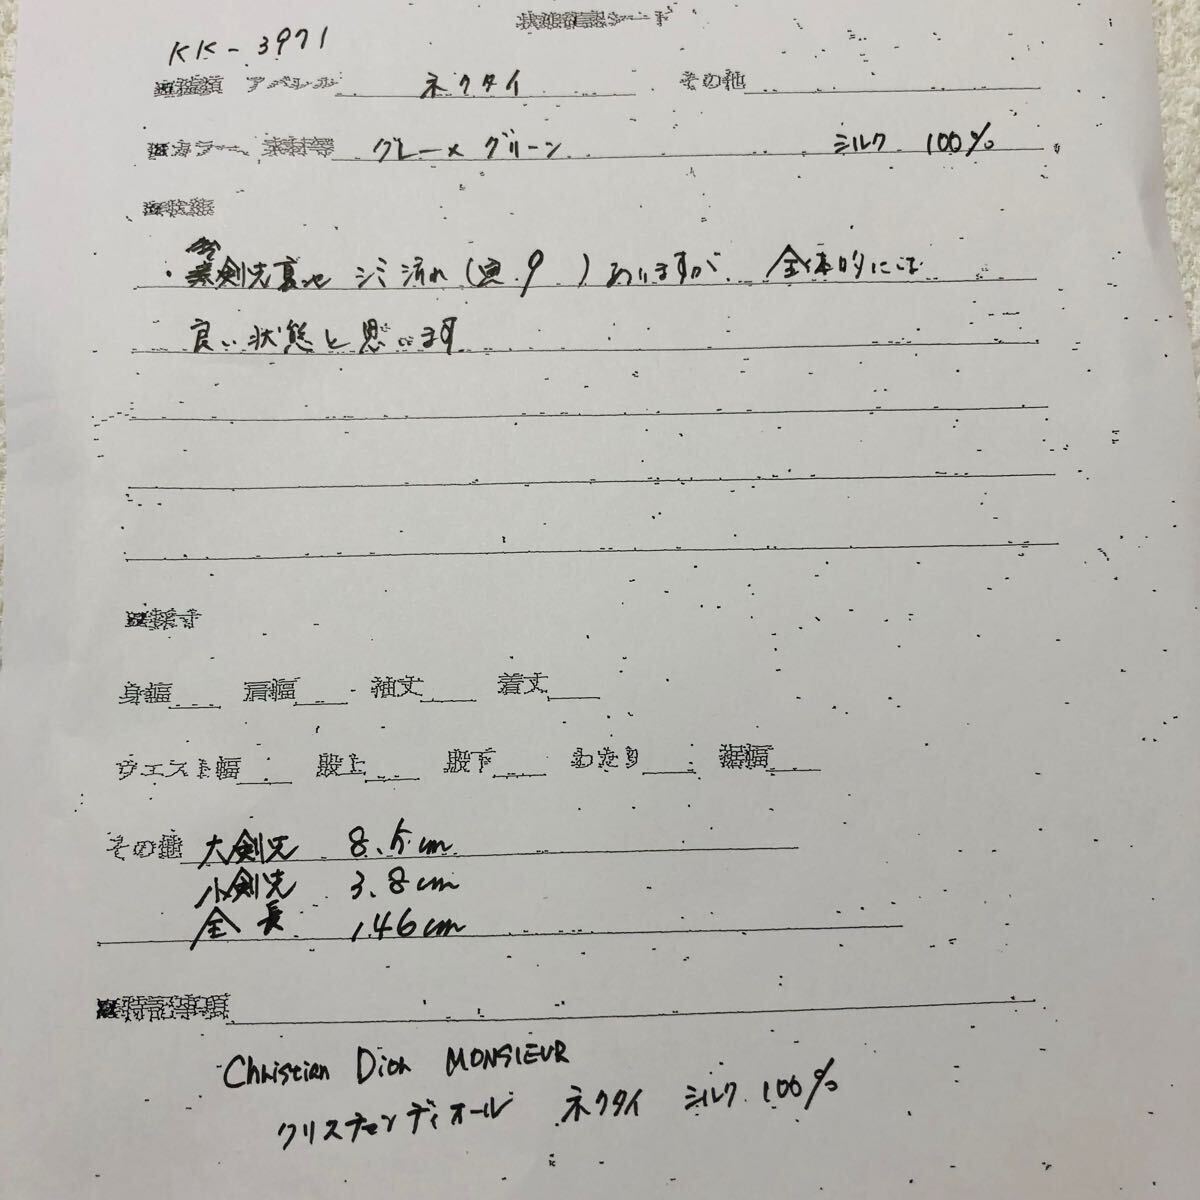 状態確認シート
KK-3971
■種類 アパレル ネクタイ その他
■カラー、素材等 グレー×グリーン シルク 100%
■状態
・剣先裏地 シミ汚れ(画 9 )ありますが、全体的には
良い状態と思います
■採寸
身幅 肩幅 袖丈 着丈
ウエスト幅 股上 股下 わたり 裾幅
その他 大剣先 8.5cm
小剣先 3.8cm
全長 146cm
■特記事項
Christian Dior MONSIEUR
クリスチャンディオール ネクタイ シルク 100%